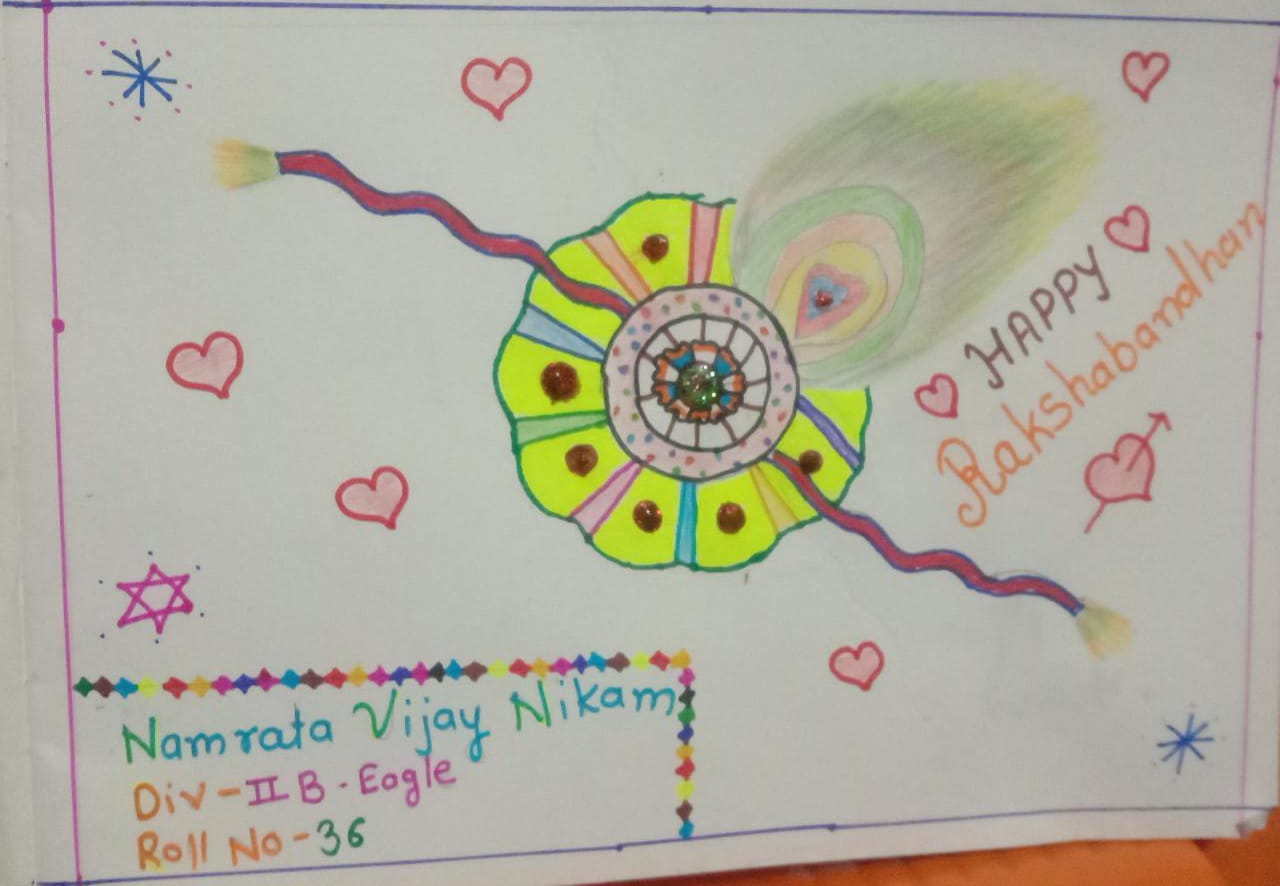 HAPPY
Rakshabandhan
Namrata Vijay Nikam
Div-II B-Eagle
Roll No-36